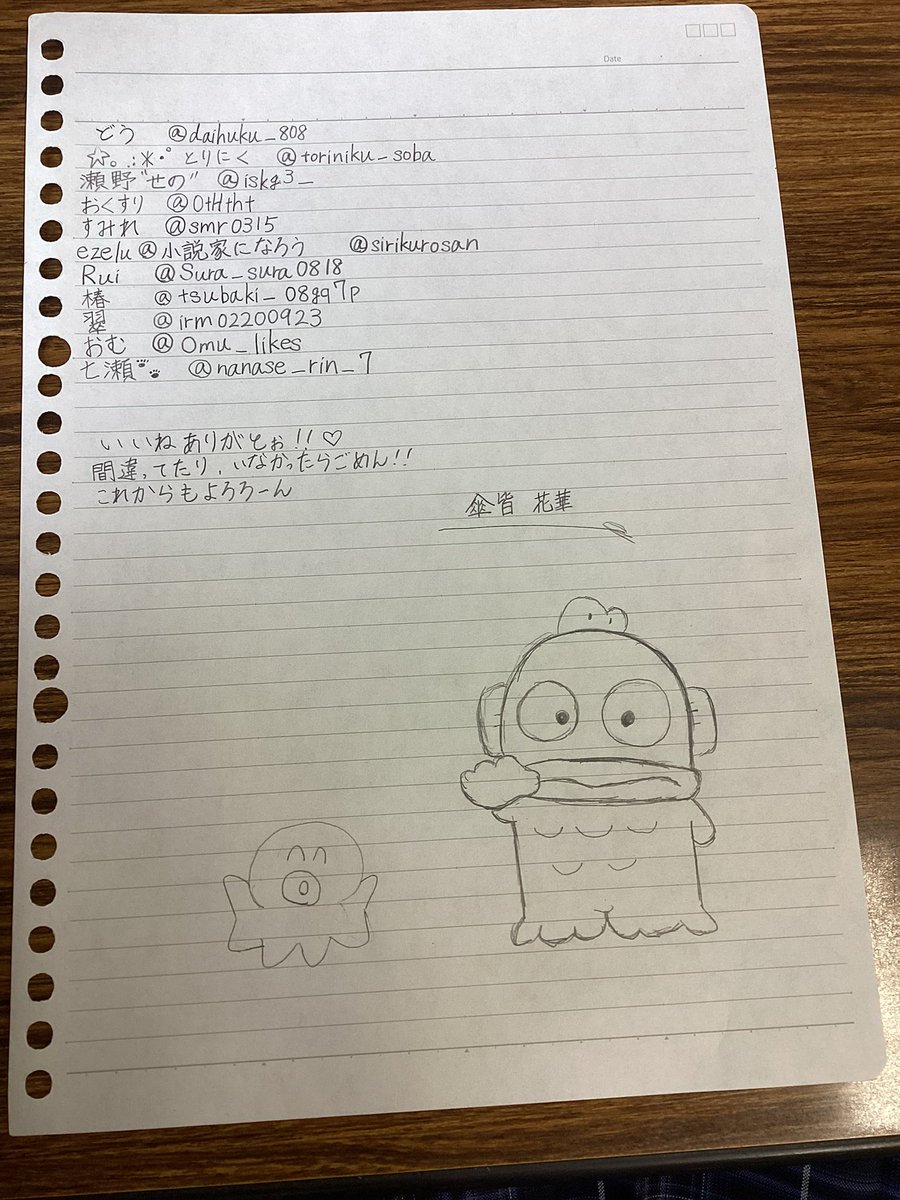 Date
どう @daihuku_808
☆。.:*・゜とりにく @toriniku_soba
瀬野"せの" @iskg3_
おくすり @OtHtht
すみれ @smr0315
ezelu@小説家になろう @sirikurosan
Rui @Sura_sura0818
椿 @tsubaki_08gq7p
翠 @irm02200923
おむ @Omu_likes
七瀬🐾 @nanase_rin_7
いいねありがとぉ!!♡
間違ってたり、いなかったらごめん!!
これからもよろろーん
傘皆 花華